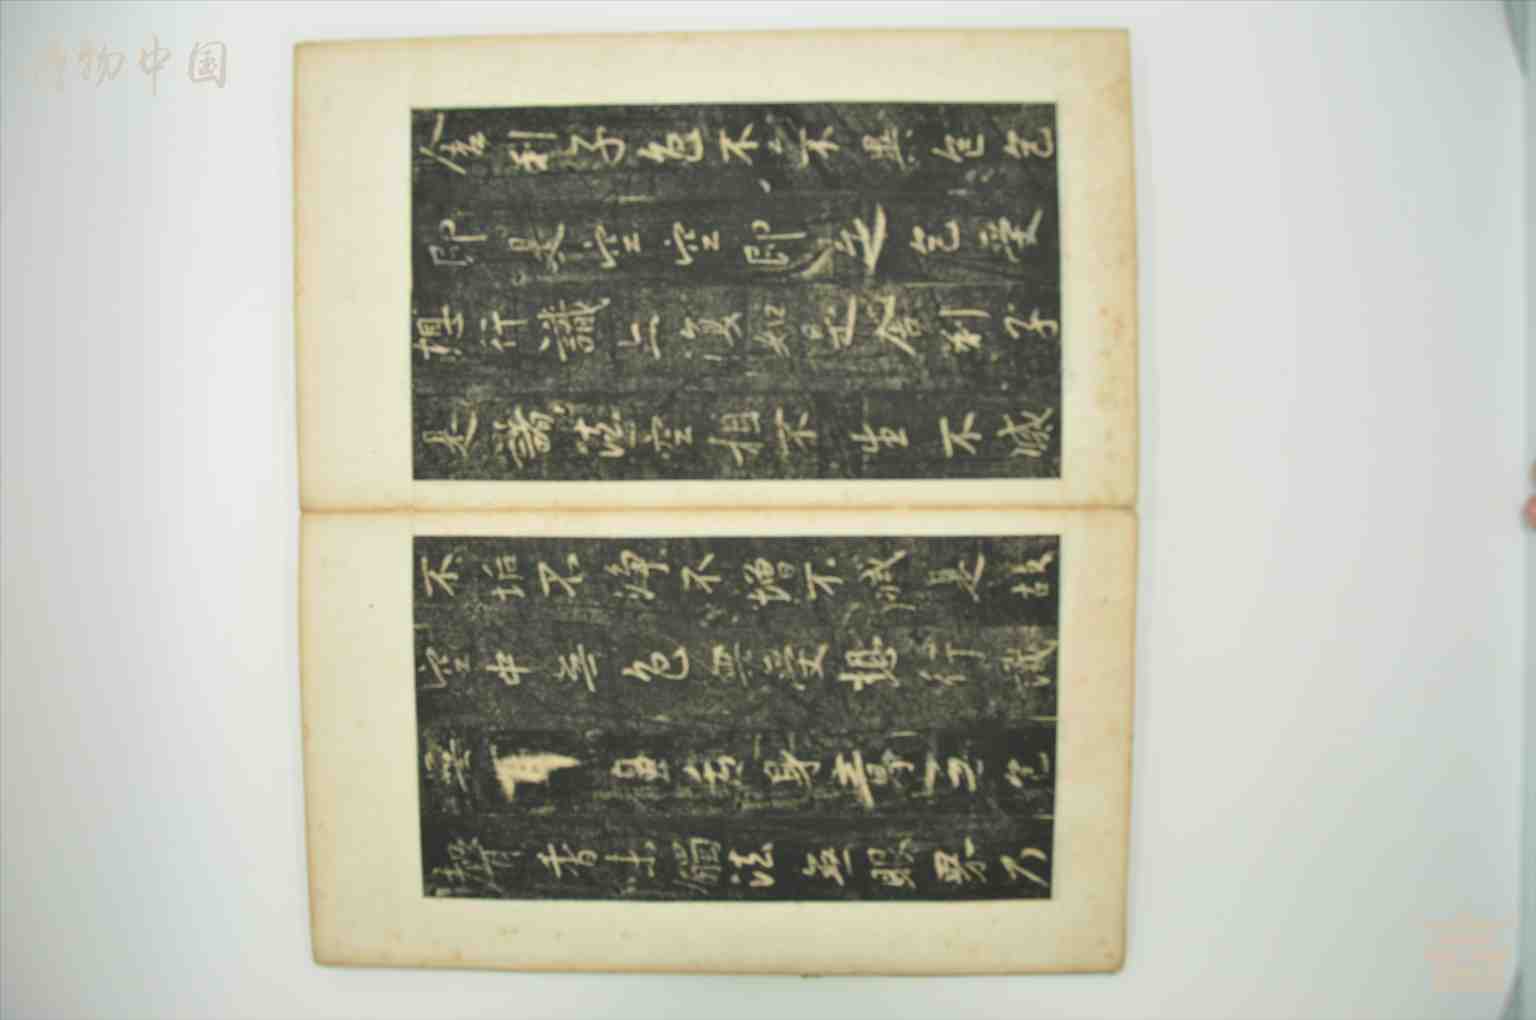 博物中国
舍利子色不不異色色
即是空空即是色受
想行識亦復如是舍利子
是諸法空相不生不滅
不垢不淨不增不減是故
空中無色無受想行識
無鼻舌身意無色
聲香味觸法無眼界乃